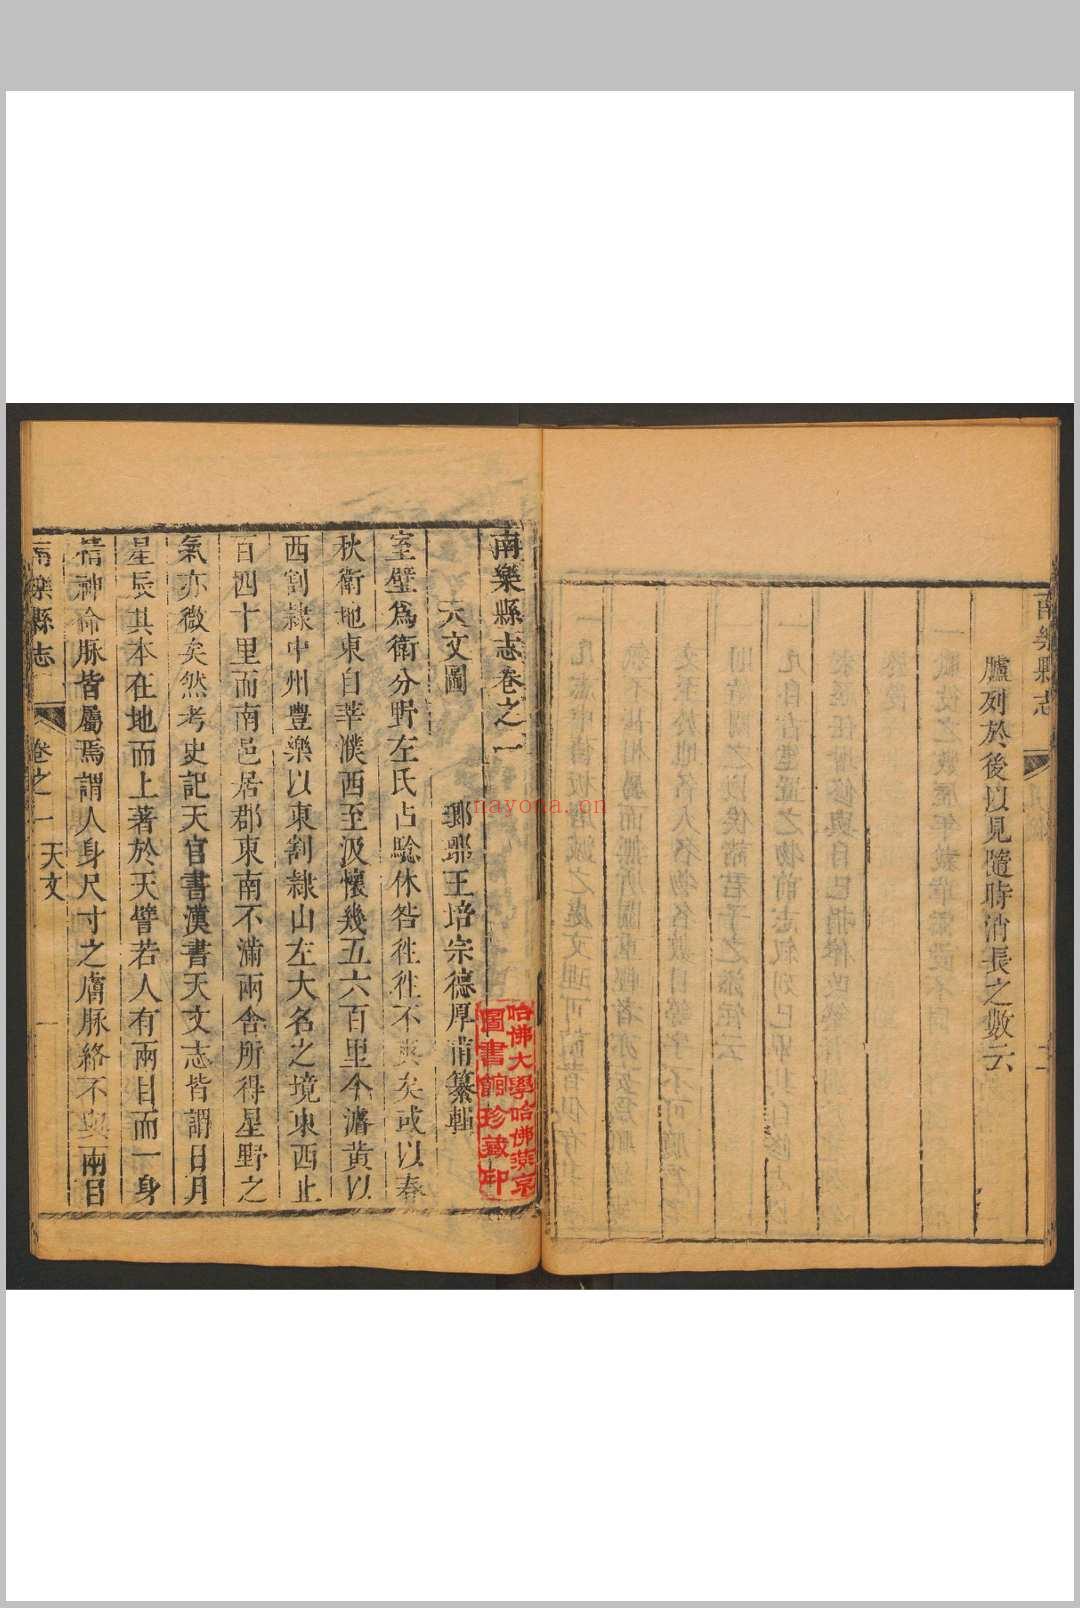 南樂縣志
臚列於後以見隨時消長之數云
南樂縣志卷之一
天文圖
瑯琊王培宗德厚甫纂輯
室壁為衛分野左氏占騐休咎徃徃不爽矣或以春
秋衛地東自莘濮西至汲懷幾五六百里今濬黃以
西割隸中州豊樂以東割隸山左大名之境東西止
百四十里而南邑居郡東南不滿兩舍所得星野之
氣亦微矣然考史記天官書漢書天文志皆謂日月
星辰其本在地而上著於天譬若人有兩目而一身
精神命脉皆屬焉謂人身尺寸之膚脉絡不與兩目
南樂縣志 卷之一 天文 一
哈佛大學哈佛燕京
圖書館珍藏印
nayona.cn